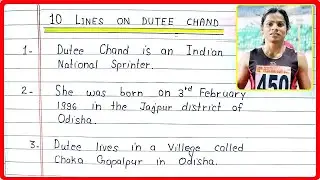 10 LINES ON DUTEE CHAND
1- Dutee Chand is an Indian
National Sprinter.
2- She was born on 3rd February
1996 in the Jajpur district of
Odisha.
3. Dutee lives in a Village called
Chaka Gopalpur in Odisha.
450